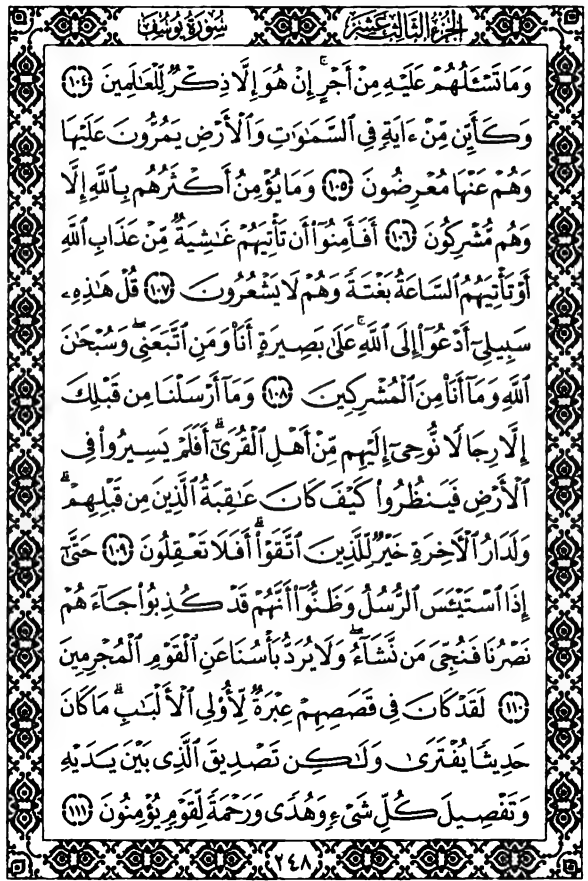 سُورَةُ يُوسُفَ الجُزءُ الثَّالِثَ عَشَرَ
وَمَا تَسْـَٔلُهُمْ عَلَيْهِ مِنْ أَجْرٍ ۚ إِنْ هُوَ إِلَّا ذِكْرٌ لِّلْعَـٰلَمِينَ ١٠٤
وَكَأَيِّن مِّنْ ءَايَةٍ فِي السَّمَـٰوَٰتِ وَالْأَرْضِ يَمُرُّونَ عَلَيْهَا
وَهُمْ عَنْهَا مُعْرِضُونَ ١٠٥ وَمَا يُؤْمِنُ أَكْثَرُهُم بِاللَّهِ إِلَّا
وَهُم مُّشْرِكُونَ ١٠٦ أَفَأَمِنُوٓا۟ أَن تَأْتِيَهُمْ غَـٰشِيَةٌ مِّنْ عَذَابِ اللَّهِ
أَوْ تَأْتِيَهُمُ السَّاعَةُ بَغْتَةً وَهُمْ لَا يَشْعُرُونَ ١٠٧ قُلْ هَـٰذِهِۦ
سَبِيلِىٓ أَدْعُوٓا۟ إِلَى اللَّهِ ۚ عَلَىٰ بَصِيرَةٍ أَنَا۠ وَمَنِ اتَّبَعَنِى ۖ وَسُبْحَـٰنَ
اللَّهِ وَمَآ أَنَا۠ مِنَ الْمُشْرِكِينَ ١٠٨ وَمَآ أَرْسَلْنَا مِن قَبْلِكَ
إِلَّا رِجَالًا نُّوحِىٓ إِلَيْهِم مِّنْ أَهْلِ الْقُرَىٰٓ ۗ أَفَلَمْ يَسِيرُوا۟ فِى
الْأَرْضِ فَيَنظُرُوا۟ كَيْفَ كَانَ عَـٰقِبَةُ الَّذِينَ مِن قَبْلِهِمْ ۗ
وَلَدَارُ الْـَٔاخِرَةِ خَيْرٌ لِّلَّذِينَ اتَّقَوْا۟ ۗ أَفَلَا تَعْقِلُونَ ١٠٩ حَتَّىٰٓ
إِذَا اسْتَيْـَٔسَ الرُّسُلُ وَظَنُّوٓا۟ أَنَّهُمْ قَدْ كُذِبُوا۟ جَآءَهُمْ
نَصْرُنَا فَنُجِّىَ مَن نَّشَآءُ ۖ وَلَا يُرَدُّ بَأْسُنَا عَنِ الْقَوْمِ الْمُجْرِمِينَ
١١٠ لَقَدْ كَانَ فِى قَصَصِهِمْ عِبْرَةٌ لِّأُو۟لِى الْأَلْبَـٰبِ ۗ مَا كَانَ
حَدِيثًا يُفْتَرَىٰ وَلَـٰكِن تَصْدِيقَ الَّذِى بَيْنَ يَدَيْهِ
وَتَفْصِيلَ كُلِّ شَىْءٍ وَهُدًى وَرَحْمَةً لِّقَوْمٍ يُؤْمِنُونَ ١١١
٢٤٨